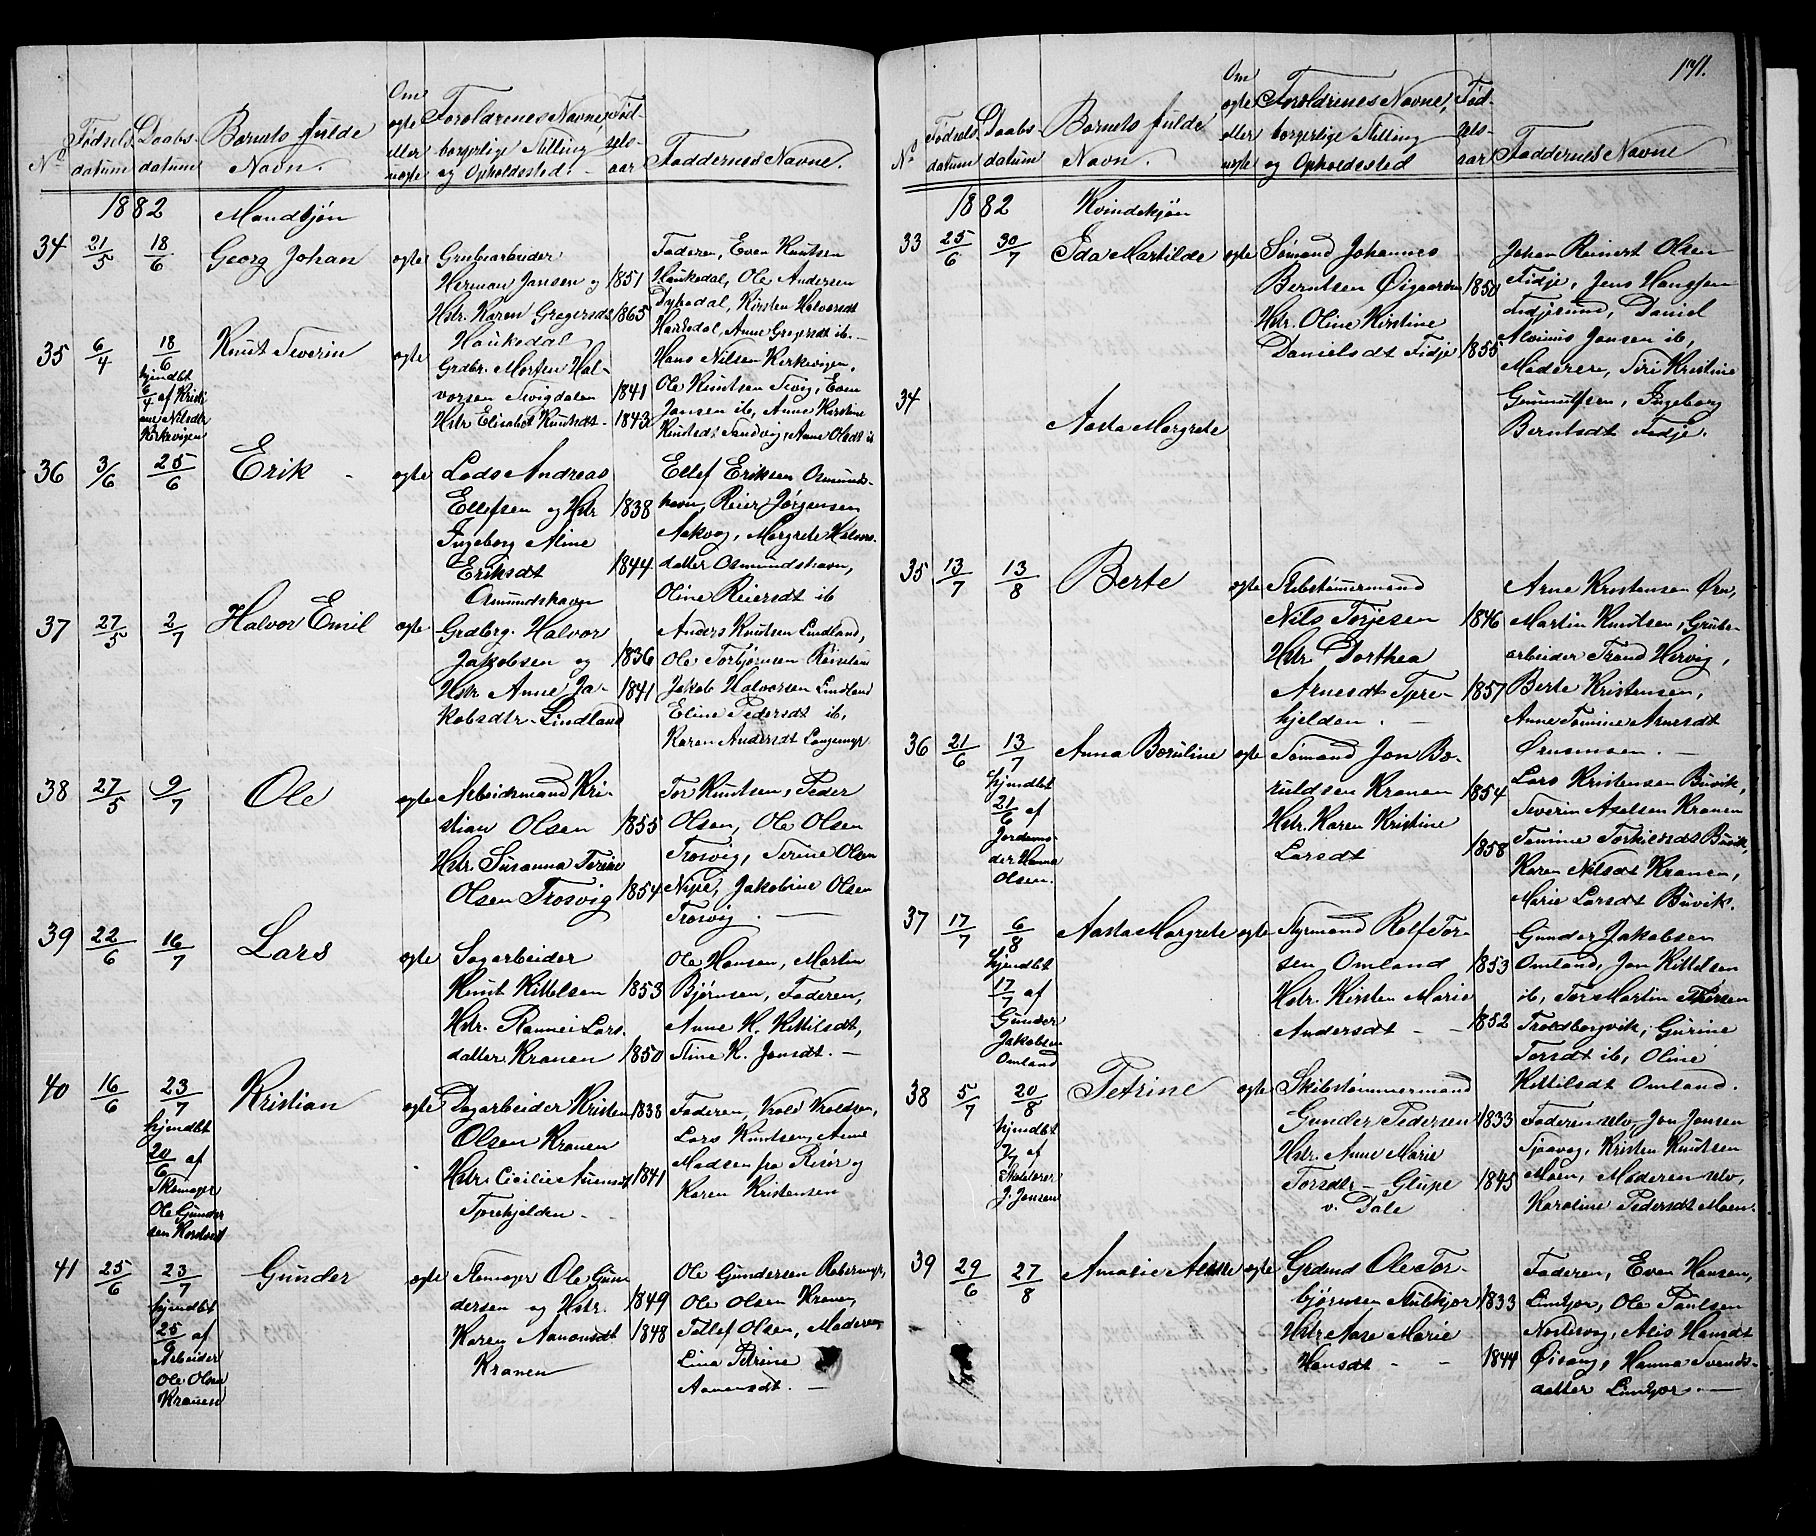 171.
No
Fødsels
datum
Daabs-
datum
Barnets fulde
Navn.
Om
ægte
eller
uægte
Forældrenes Navne,
borgerlige Stilling
og Opholdssted.
Fød-
sels-
aar
Faddernes Navne.
1882 Mandkjøn
34
21/5
18/6
Georg Johan
ægte
Grubearbeider
Herman Jansen og 1851
Hstr. Karen Gregersdt 1865
Haukedal
Faderen, Even Knutsen
Haukedal, Ole Andersen
Dybedal, Kirsten Halvorsdt
Haukedal, Anne Gregersdt ib.
35
6/4
18/6
hjmdbt
6/4 af Kristi
ane Nilsdtr
Kirkevigen
Knut Severin
ægte
Grdbr. Morten Hal-
vorsen Sevigdalen 1841
Hstr Elisabet Knutsdt 1843
Hans Nilsen Kirkevigen,
Ole Knutsen Sevig, Even
Jansen ib, Anne Kirstine
Knutsdt Sandvig, Anne Olsdt ib
36
3/6
25/6
Erik
ægte
Lods Andreas
Ellefsen og Hstr 1838
Ingeborg Aline
Eriksdt 1844
Osmundshavn
Ellef Eriksen Osmunds-
havn, Reier Jørgensen
Aakvog, Margrete Halvors-
datter Osmundshavn,
Oline Reiersdt ib
37
27/5
2/7
Halvor Emil
ægte
Grdbrg. Halvor
Jakobsen og 1836
Hstr Anne Ja- 1841
kobsdtr. Lindland
Anders Knutsen Lindland,
Ole Torbjørnsen
Jakob Halvorsen Lindland
Eline Pedersdt ib,
Karen Andersdt Langemyr.
38
27/5
9/7
Ole
ægte
Arbeidsmand Kri-
stian Olsen 1855
Hstr. Susanna Terine
Olsen Trosvig 1854
Tor Knutsen, Peder
Olsen, Ole Olsen
Trosvig, Serine Olsen
Nipe, Jakobine Olsen
Trosvig.
39
22/6
16/7
Lars
ægte
Sagarbeider
Knut Kittelsen 1853
Hstr. Rannei Lars.
datter Kranen 1850
Ole Hansen, Martin
Bjørnsen, Faderen,
Anne H. Kittilsdt,
Stine K. Jonsdt.
40
16/6
23/7
hjmdbt
20/6 af
Skomager
Ole Gunder
sen
Kristian
ægte
Dagarbeider Kristen 1838
Olsen Kranen
Hstr. Cicilie 1841
Tprekjelden
Faderen, Vrold Vroldsen,
Lars Knutsen, Anne
Madsen fra Risør og
Karen Kristensen
41
25/6
23/7
hjmdbt
25/6 af
Arbeider
Ole Olsen
Kranen
Gunder
ægte
Skomager Ole Gun
dersen og Hstr. 1849
Karen Aanonsdt 1848
Kranen
Ole Gundersen
Ole Olsen Kranen
Tellef Olsen, Moderen,
Lina Petrine
Aanensdt.
No
Fødsels
datum
Daabs-
datum
Barnets fulde
Navn.
Om
ægte
eller
uægte
Forældrenes Navne,
borgerlige Stilling
og Opholdssted
Fød-
sels-
aar
Faddernes Navne
1882 Kvindekjøn
33
25/6
30/7
Ida Martilde
ægte
Sømand Johannes
Berntsen Øigaarden 1850
Hstr. Oline Kirstine
Danielsdt Fidje 1855
Johan Reinert Olsen
Fidje, Jens Hansen
Fidjesund, Daniel
Alvinus Jansen ib,
Moderen, Siri Kristine
Gunnulfsen, Ingeborg
Berntsdt Fidje.
34
Aasta Margrete
35
13/7
13/8
Berte
ægte
Skibstømmermand
Nils Torjesen 1846
Hstr Dorthea
Arnesdt Tpre- 1857
kjelden.
Arne Kristensen Øren,
Martin Knutsen, Grube-
arbeider Trond Hervig,
Berte Kristensen,
Anne Tomine Arnesdt
36
21/6
13/7
hjmdbt
21/6 af
Jordemo-
der Hanna
Olsen.
Anna Boruline
ægte
Sømand Jon Bo-
ruldsen Kranen 1854
Hstr. Karen Kristine
Larsdt 1858
Lars Kristensen Buvik,
Severin Axelsen Kranen
Tomine Torkildsdt Buvik,
Karen Nilsdt Kranen,
Marie Larsdt Buvik.
37
17/7
6/8
hjmdbt
17/7 af
Gunder
Jakobsen
Omland
Aasta Margrete
ægte
Styrmand Rolf Tor-
sen Omland 1853
Hstr. Kirsten Marie
Andersdt 1852
Gunder Jakobsen
Omland, Jon Kittelsen
ib, Tor Martin Thorsen
Troldborgvik, Gurine
Torsdt ib, Oline
Kittilsdt Omland.
38
5/7
20/8
hjmdbt
7/7 af
Skolelærer
J. Jonsen
Petrine
ægte
Skibstømmermand
Gunder Pedersen 1833
Hstr. Anne Marie
Torsdtr - Glupe 1845
v. Dale
Faderen selv, Jon Jonsen
Tjaavog, Kristen Knutsen
Moen, Moderen selv,
Karoline Pedersdt Moen.
39
29/6
27/8
Amalie
ægte
Grdmd Ole Tor-
bjørnsen Aulkjær 1833
Hstr Aase Marie
Hansdt 1844
Faderen, Even Hansen,
Limkjær, Ole Paulsen
Nordevog, Alis Hansdt
Øivang, Hanna Svends-
datter Limkjær.